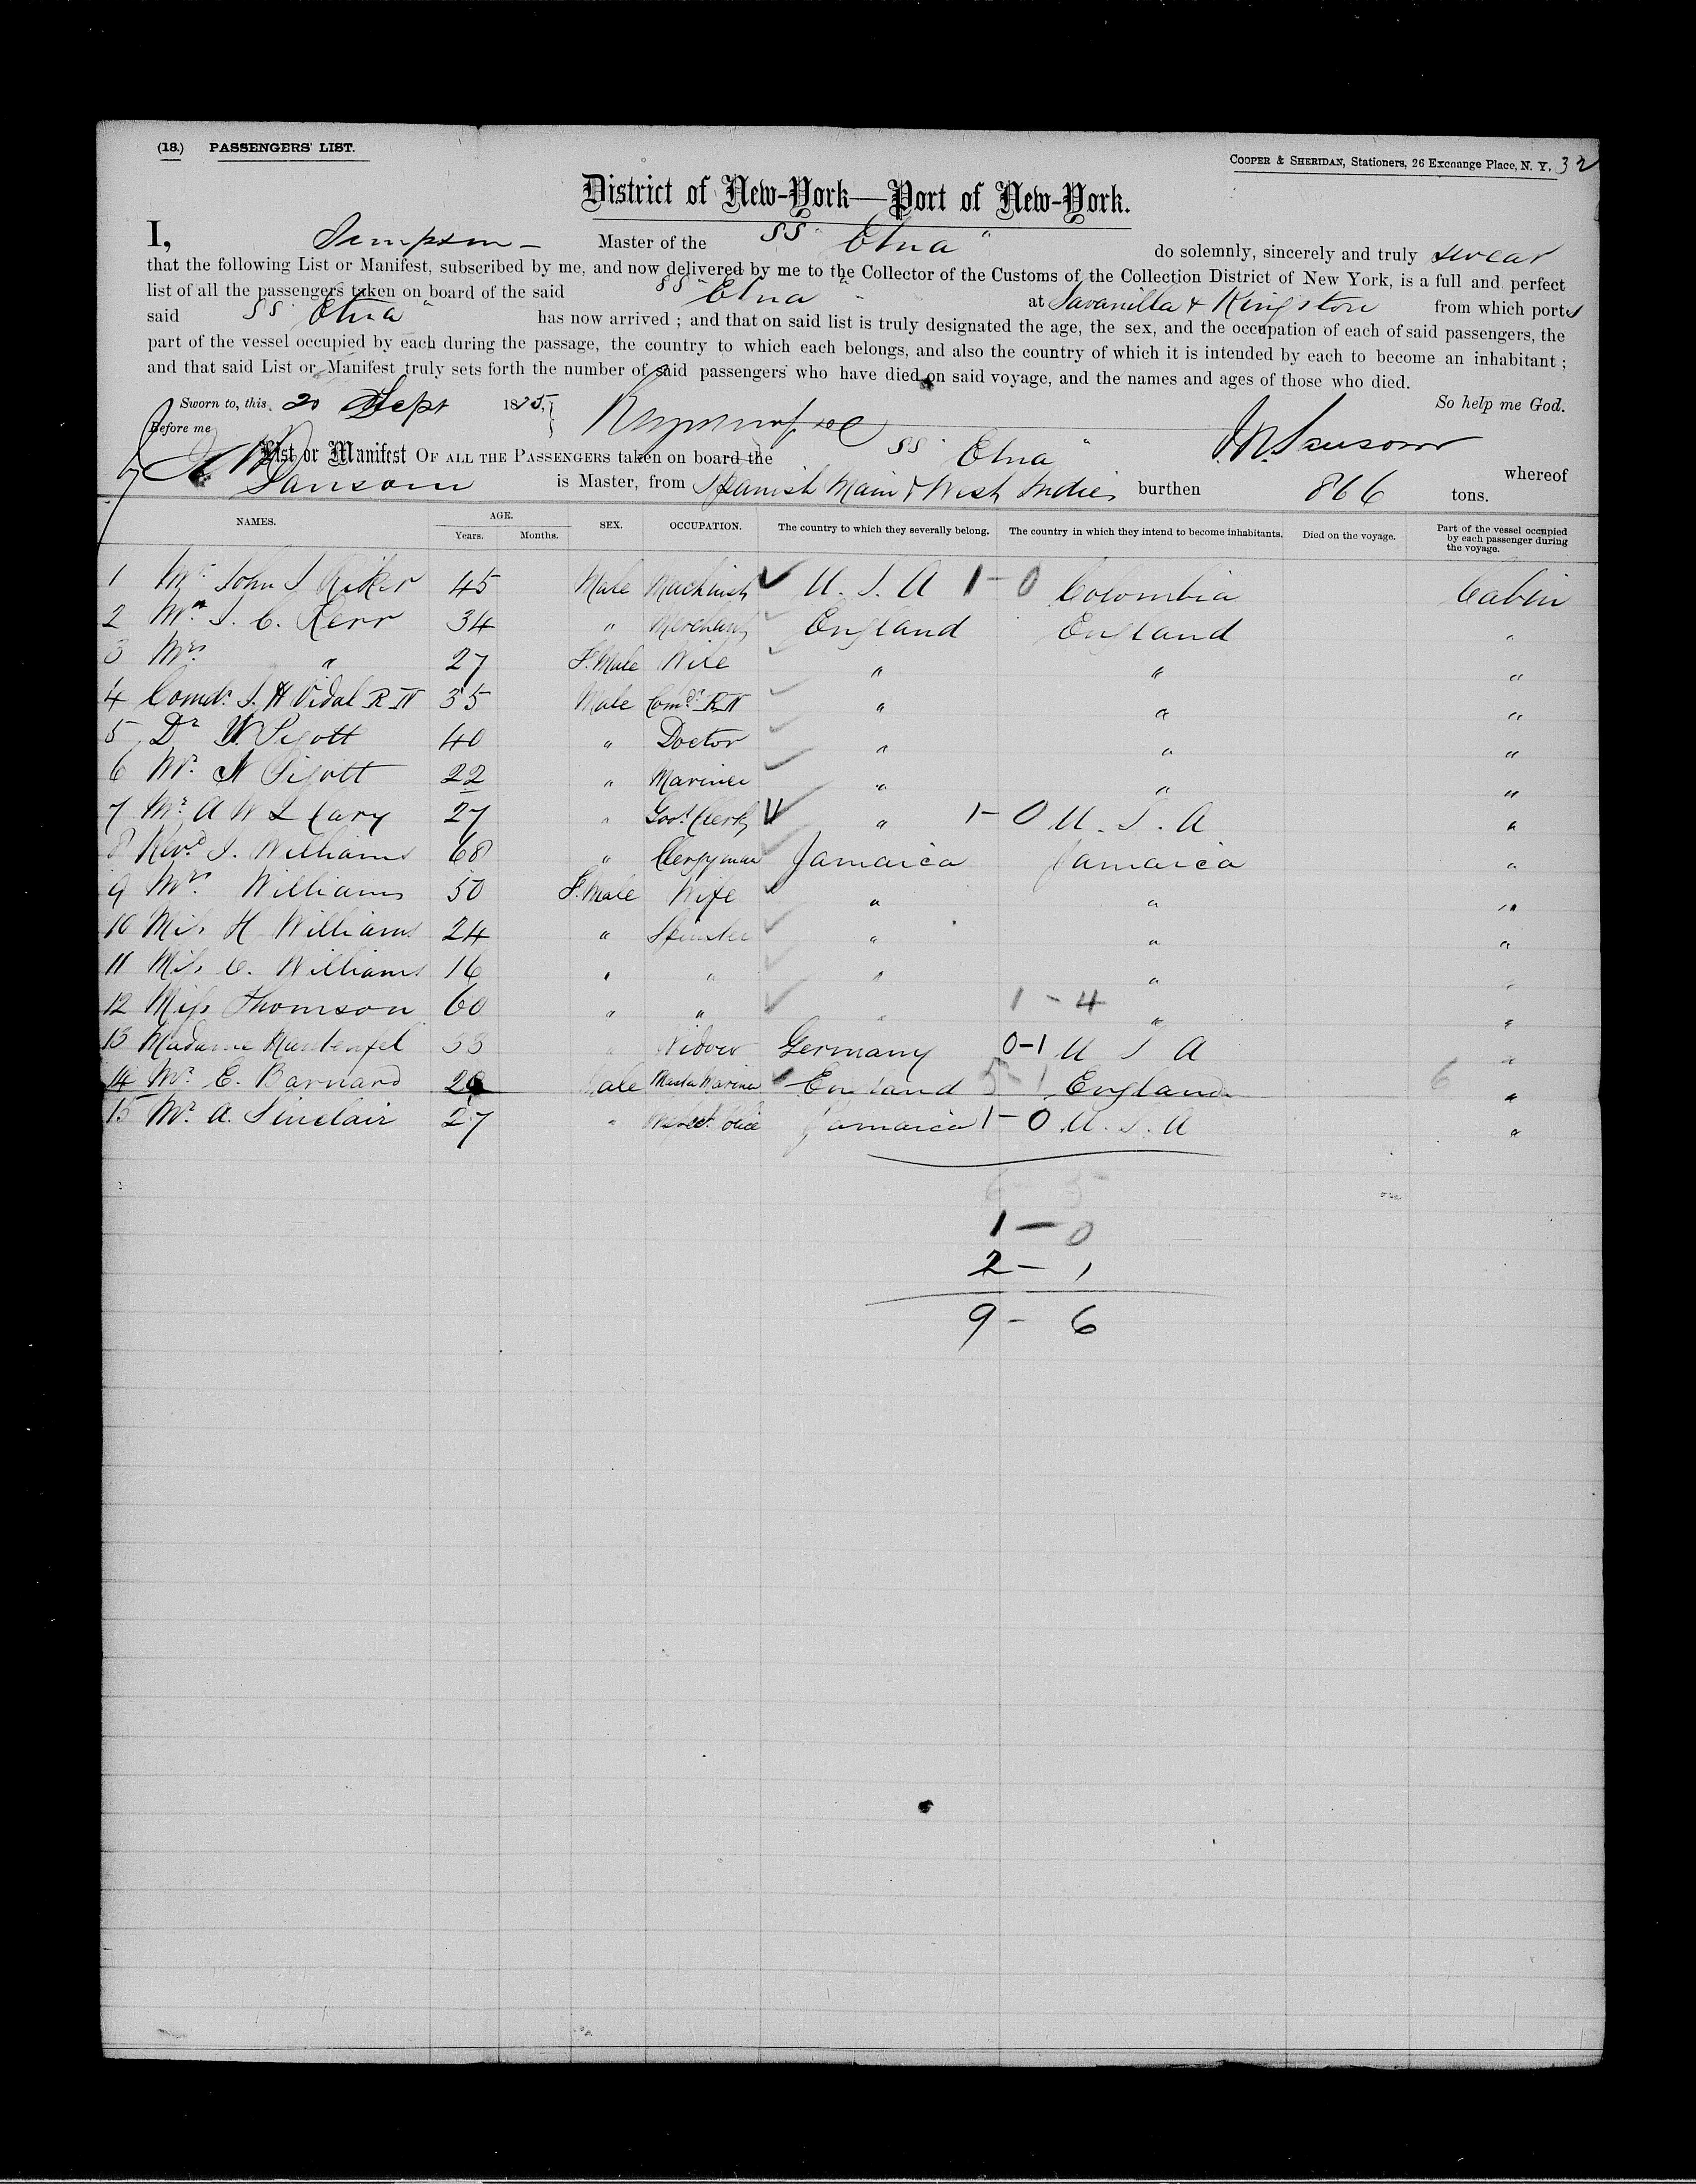 (18.) PASSENGERS' LIST.
COOPER & SHERIDAN, Stationers, 26 Exchange Place, N. Y. 32
District of New-York—Port of New-York.
I, Sempson - Master of the SS "Etna" do solemnly, sincerely and truly swear
that the following List or Manifest, subscribed by me, and now delivered by me to the Collector of the Customs of the Collection District of New York, is a full and perfect
list of all the passengers taken on board of the said SS "Etna" at Savanilla & Kingston from which ports
said SS "Etna" has now arrived ; and that on said list is truly designated the age, the sex, and the occupation of each of said passengers, the
part of the vessel occupied by each during the passage, the country to which each belongs, and also the country of which it is intended by each to become an inhabitant ;
and that said List or Manifest truly sets forth the number of said passengers who have died on said voyage, and the names and ages of those who died.
So help me God.
Sworn to, this 20 Sept 1875,
Before me J. M. Sansom
List or Manifest OF ALL THE PASSENGERS taken on board the SS "Etna" whereof
Sansom is Master, from Spanish Main & West Indies burthen 866 tons.
NAMES. AGE. Years. Months. SEX. OCCUPATION. The country to which they severally belong. The country in which they intend to become inhabitants. Died on the voyage. Part of the vessel occupied by each passenger during the voyage.
1 Mr. John J Riker 45 Male Machinist U. S. A 1-0 Colombia Cabin
2 Mr. J. C. Kerr 34 " Merchant England England "
3 Mrs. " 27 F.Male Wife " " "
4 Comdr. J. H Vidal R N 35 Male Comdr. R N " " "
5 Dr W. Pigott 40 " Doctor " " "
6 Mr. N Pigott 22 " Mariner " " "
7 Mr A W L Cary 27 " Govt. Clerk " 1-0 U. S. A "
8 Revd J. Williams 68 " Clergyman Jamaica Jamaica "
9 Mrs. Williams 50 F.Male Wife " " "
10 Miss H Williams 24 " Spinster " " "
11 Miss C. Williams 16 " " " " "
12 Miss Thomson 60 " " " 1-4 " "
13 Madame Mantenfel 53 " Widow Germany 0-1 U S A "
14 Mr. E. Barnard Male Master Mariner England 5-1 England 6 "
15 Mr. A. Sinclair 27 " Inspect. Police Jamaica 1-0 U. S. A "
6 - 5
1 - 0
2 - 1
9 - 6